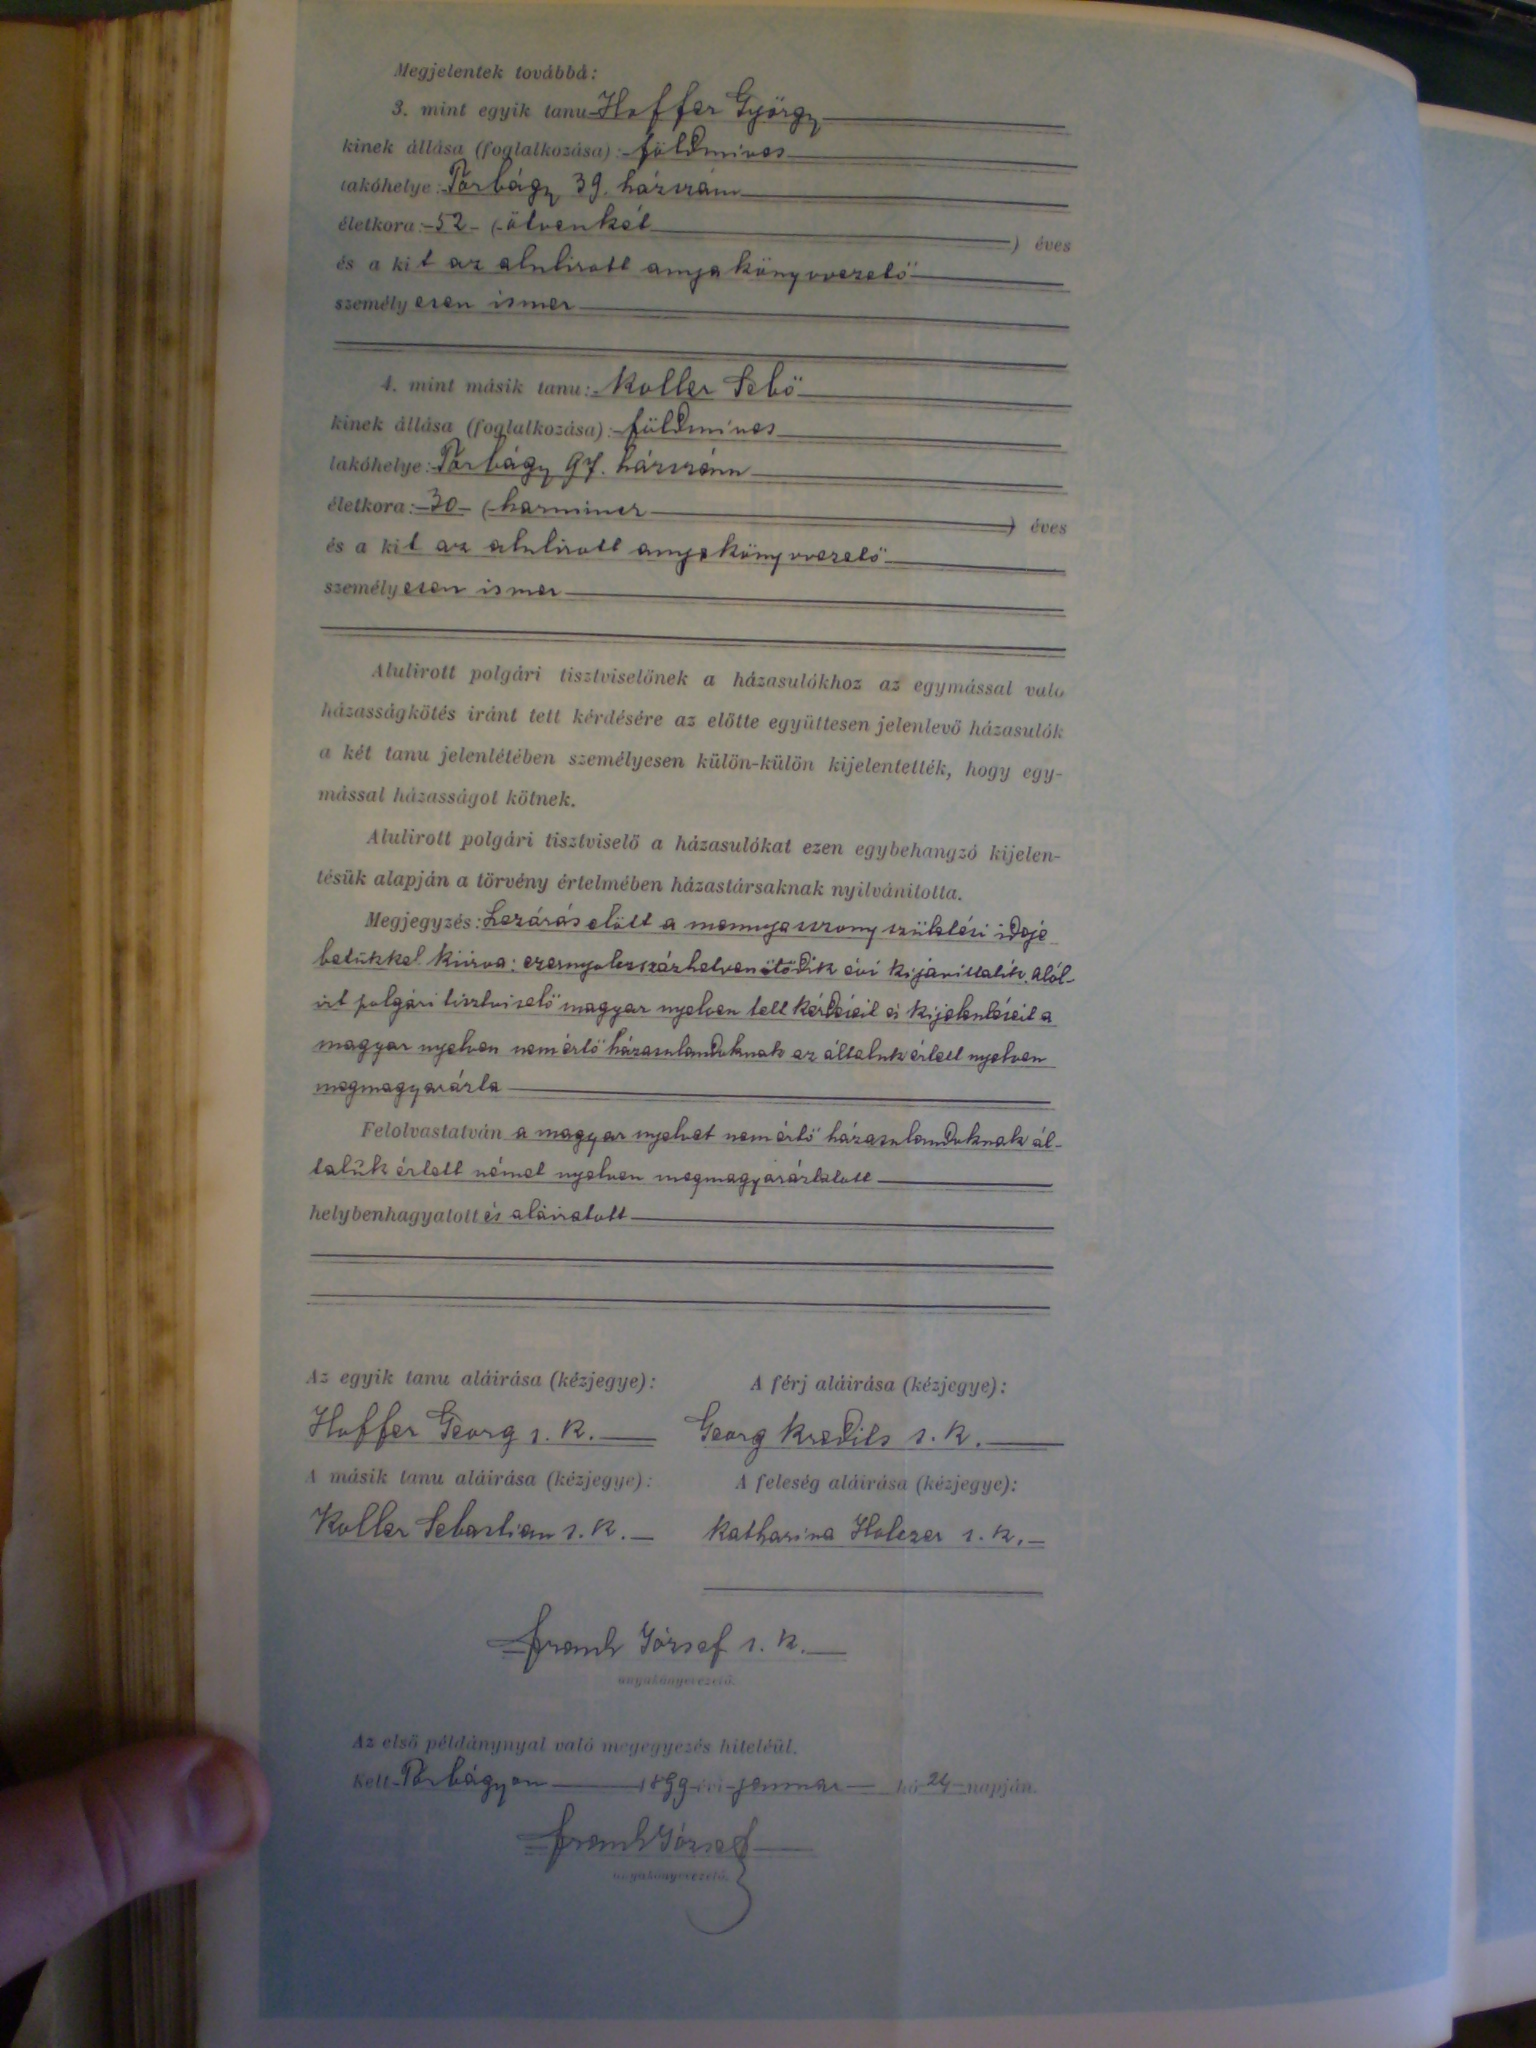 Megjelentek továbbá:
3. mint egyik tanu Hoffer György
kinek állása (foglalkozása): földmives
lakóhelye: Torbágy 39. házszám
életkora: 52 (ötvenkét) éves
és a kit az alulirott anyakönyvvezető
személyesen ismer
4. mint másik tanu: Koller Sebő
kinek állása (foglalkozása): földmives
lakóhelye: Torbágy 97. házszám
életkora: 30 (harmincz) éves
és a kit az alulirott anyakönyvvezető
személyesen ismer
Alulirott polgári tisztviselőnek a házasulókhoz az egymással való
házasságkötés iránt tett kérdésére az előtte együttesen jelenlevő házasulók
a két tanu jelenlétében személyesen külön-külön kijelentették, hogy egy-
mással házasságot kötnek.
Alulirott polgári tisztviselő a házasulókat ezen egybehangzó kijelen-
tésük alapján a törvény értelmében házastársaknak nyilvánitotta.
Megjegyzés: Lezárás előtt a mennyasszony születési ideje
betükkel kiirva: ezernyolczszázhetvenötödik évi kijavittatik. Alól-
irt polgári tisztviselő magyar nyelven tett kérdéseit és kijelentéseit a
magyar nyelven nem értő házasulandoknak az általuk értett nyelven
megmagyarázta
Felolvastatván a magyar nyelvet nem értő házasulandoknak ál-
taluk értett német nyelven megmagyaráztatott
helybenhagyatott és aláiratott
Az egyik tanu aláirása (kézjegye): A férj aláirása (kézjegye):
Hoffer Georg s. k. Georg Kredits s. k.
A másik tanu aláirása (kézjegye): A feleség aláirása (kézjegye):
Koller Sebastian s. k. Katharina Holczer s. k.
József s. k.
anyakönyvvezető.
Az első példánynyal való megegyezés hiteléül.
Kelt Torbágyon 1899 évi januar hó 24 napján.
József
anyakönyvvezető.